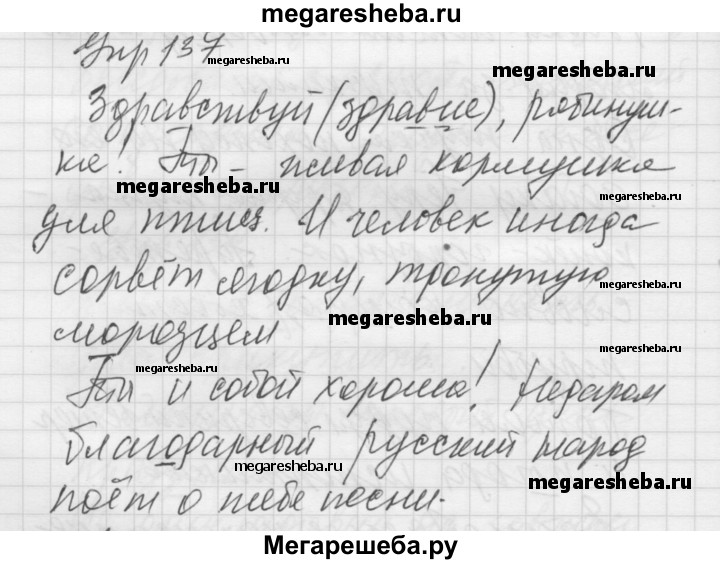 megaresheba.ru
Упр 137
megaresheba.ru
megaresheba.ru
Здравствуй (здравие), рябинуш-
ка! Ты – живая кормушка
megaresheba.ru
megaresheba.ru
для птиц. И человек иногда
сорвёт ягодку, тронутую
megaresheba.ru
megaresheba.ru
морозцем
megaresheba.ru
Ты и собой хороша! Недаром
благодарный русский народ
megaresheba.ru
megaresheba.ru
поёт о тебе песни.
Мегарешеба.ру